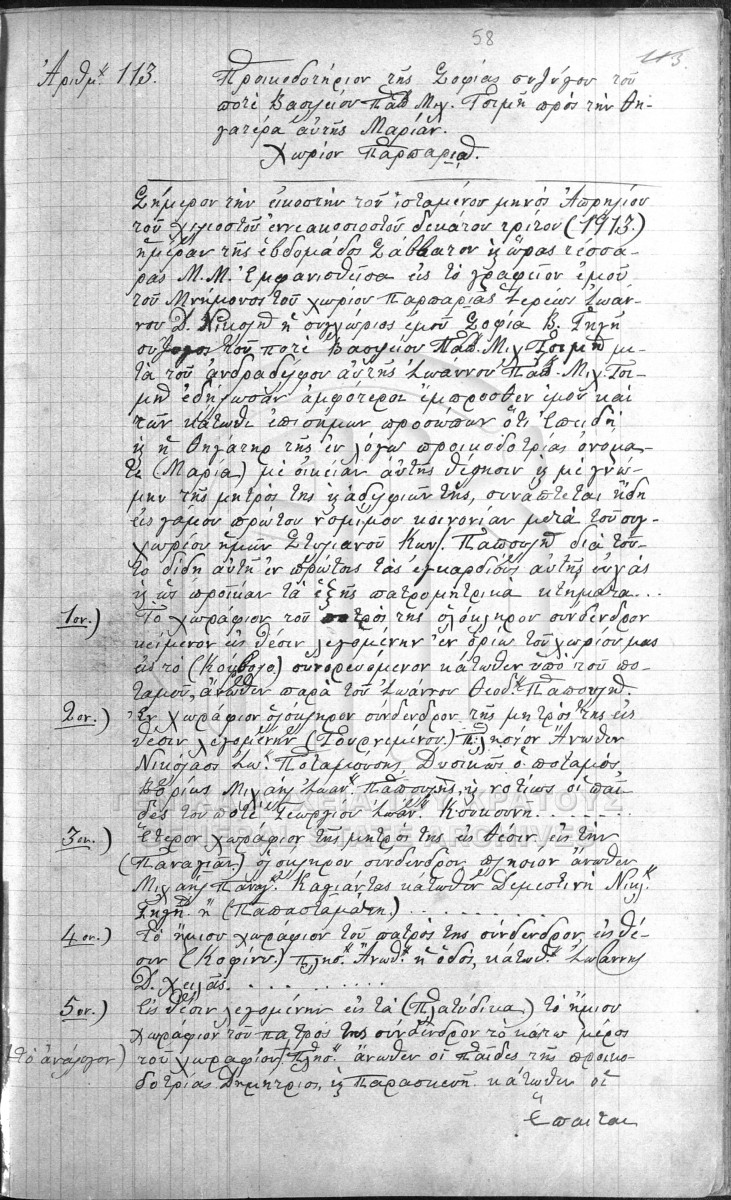 58
113.
Ἀριθμ. 113. Προικοδοτήριον τῆς Σοφίας συζύγου τοῦ
ποτὲ Βασιλείου Παπ Μιχ. Τσιμῆ πρὸς τὴν θη-
γατέρα αὐτῆς Μαρίαν.
Χωρίον Παρπαριᾶ.
Σήμερον τὴν εἰκοστὴν τοῦ ἱσταμένου μηνὸς Ἀπριλίου
τοῦ χιλιοστοῦ ἐννεακοσιοστοῦ δεκάτου τρίτου (1913)
ἡμέραν τῆς ἑβδομάδος Σάββατον κ ὥρας τέσσα-
ρας Μ.Μ. Ἐμφανισθεῖσα εἰς τὸ γραφεῖον ἐμοῦ
τοῦ Μνήμονος τοῦ χωρίου Παρπαριᾶς Ἱερέως Ἰωάν-
νου Δ. ἡ συγχώριος ἐμοῦ Σοφία Β.
συζυγος τοῦ ποτὲ Βασιλείου Παπ. Μιχ Τσιμῆ με-
τὰ τοῦ ἀνδραδέλφου αὐτῆς Ἰωάννου Παπ. Μιχ. Τσι-
μῆ ἐδήλωσαν ἀμφότεροι ἔμπροσθεν ἐμοῦ καὶ
τῶν κάτωθι ἐπισήμων προσώπων ὅτι Ἐπειδὴ
κ ἡ θηγάτηρ τῆς ἐν λόγῳ προικοδοτρίας ὀνόμα-
τι (Μαρία) μὲ οἰκείαν αὐτῆς θέλησιν κ μὲ γνώ-
μην τῆς μητρός της κ ἀδελφιῶν της, συνάπτεται ἤδη
εἰς γάμου πρώτου νομίμου κοινονίαν μετὰ τοῦ συγ-
χωρίου ἡμῶν Στυλιανοῦ Κων. Παπουλῆ διὰ τοῦ-
το δίδη αὐτῇ ἐν πρώτοις τὰς ἐγκαρδίους αὐτῆς εὐχὰς
κ ὡς προῖκαν τὰ ἑξῆς πατρομητρικὰ κτήματα...
1ον.) Τὸ χωράφιον τοῦ πατρός της ὁλόκληρον σύνδενδρον
κείμενον εἰς θέσιν λεγομένην ἐν ὁρίῳ τοῦ χωρίου μας
εἰς τὸ συνορευόμενον κάτωθεν ὑπὸ τοῦ πο-
ταμοῦ, ἄνωθεν παρὰ τοῦ Ἰωάννου Θεοδ. Παπουλῆ.
2ον.) Ἓν χωράφιον ὁλόκληρον σύνδενδρον τῆς μητρός της εἰς
θέσιν λεγομένην πλησίον Ἄνωθεν
Νικόλαος Ἰω. Ποταμούσης, Δυσικῶς ὁ ποταμὸς
Βορίως Μιχαὴλ Ἰωαν. Παπουλῆς, κ νοτίως οἱ παῖ-
δες τοῦ ποτὲ Γεωργίου Ἰωαν. Κουκουνη.......
3ον.) Ἕτερον χωράφιον τῆς μητρός της εἰς θέσιν εἰς τὴν
(Παναγίαν.) ὁλόκληρον σύνδενδρον πλησίον ἄνωθεν
Μιχαὴλ Παναγ. κάτωθεν Δεμεστινὴ Νικλ.
ἢ (Παπασταμάτη.).........
4ον.) Τὸ ἥμισυ χωράφιον τοῦ πατρός της σύνδενδρον εἰς θέ-
σιν (Κοφίνα.) πλησ. Ἄνωθ. ἡ ὁδός, κάτωθ. Ἰωάννης
Δ. Χειλᾶς...........
5ον.) Εἰς θέσιν λεγομένην εἰς τὰ (Πλατύδικα) τὸ ἥμισυ
χωράφιον τοῦ πατρός της σύνδενδρον τὸ κάτω μέρος
(τὸ ἀνάλογον) τοῦ χωραφίου πλησ. ἄνωθεν οἱ παῖδες τῆς προικο-
δοτρίας Δημήτριος, κ Παρασκευὴ κάτωθεν οἱ
Ἕπαιται
ΓΕΝΙΚΑ ΑΡΧΕΙΑ ΤΟΥ ΚΡΑΤΟΥΣ
GENERAL STATE ARCHIVES